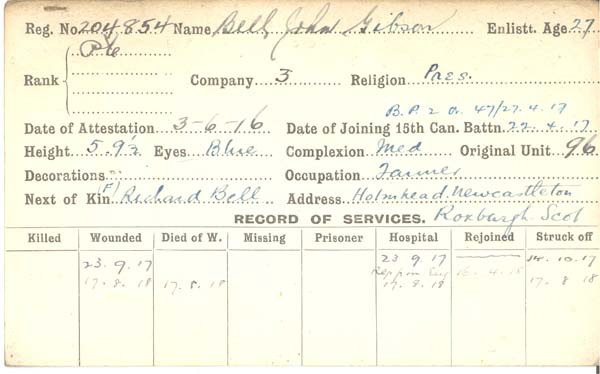 Reg. No. 204854 Name Bell, John Gibson Enlistt. Age 27
Pte
Rank Company 3 Religion Pres.
B.P. 2 O. 47/27.4.17
Date of Attestation 3-6-16 Date of Joining 15th Can. Battn. 22.4.17.
Height 5.9½ Eyes Blue Complexion Med Original Unit 96
Decorations Occupation Farmer
Next of Kin (F) Richard Bell Address Holmhead. Newcastleton
RECORD OF SERVICES. Roxburgh Scot
Killed Wounded Died of W. Missing Prisoner Hospital Rejoined Struck off
23.9.17 23 9.17 14.10.17
16.4.18
17.8.18 17.8.18 17.8.18 17 8 18